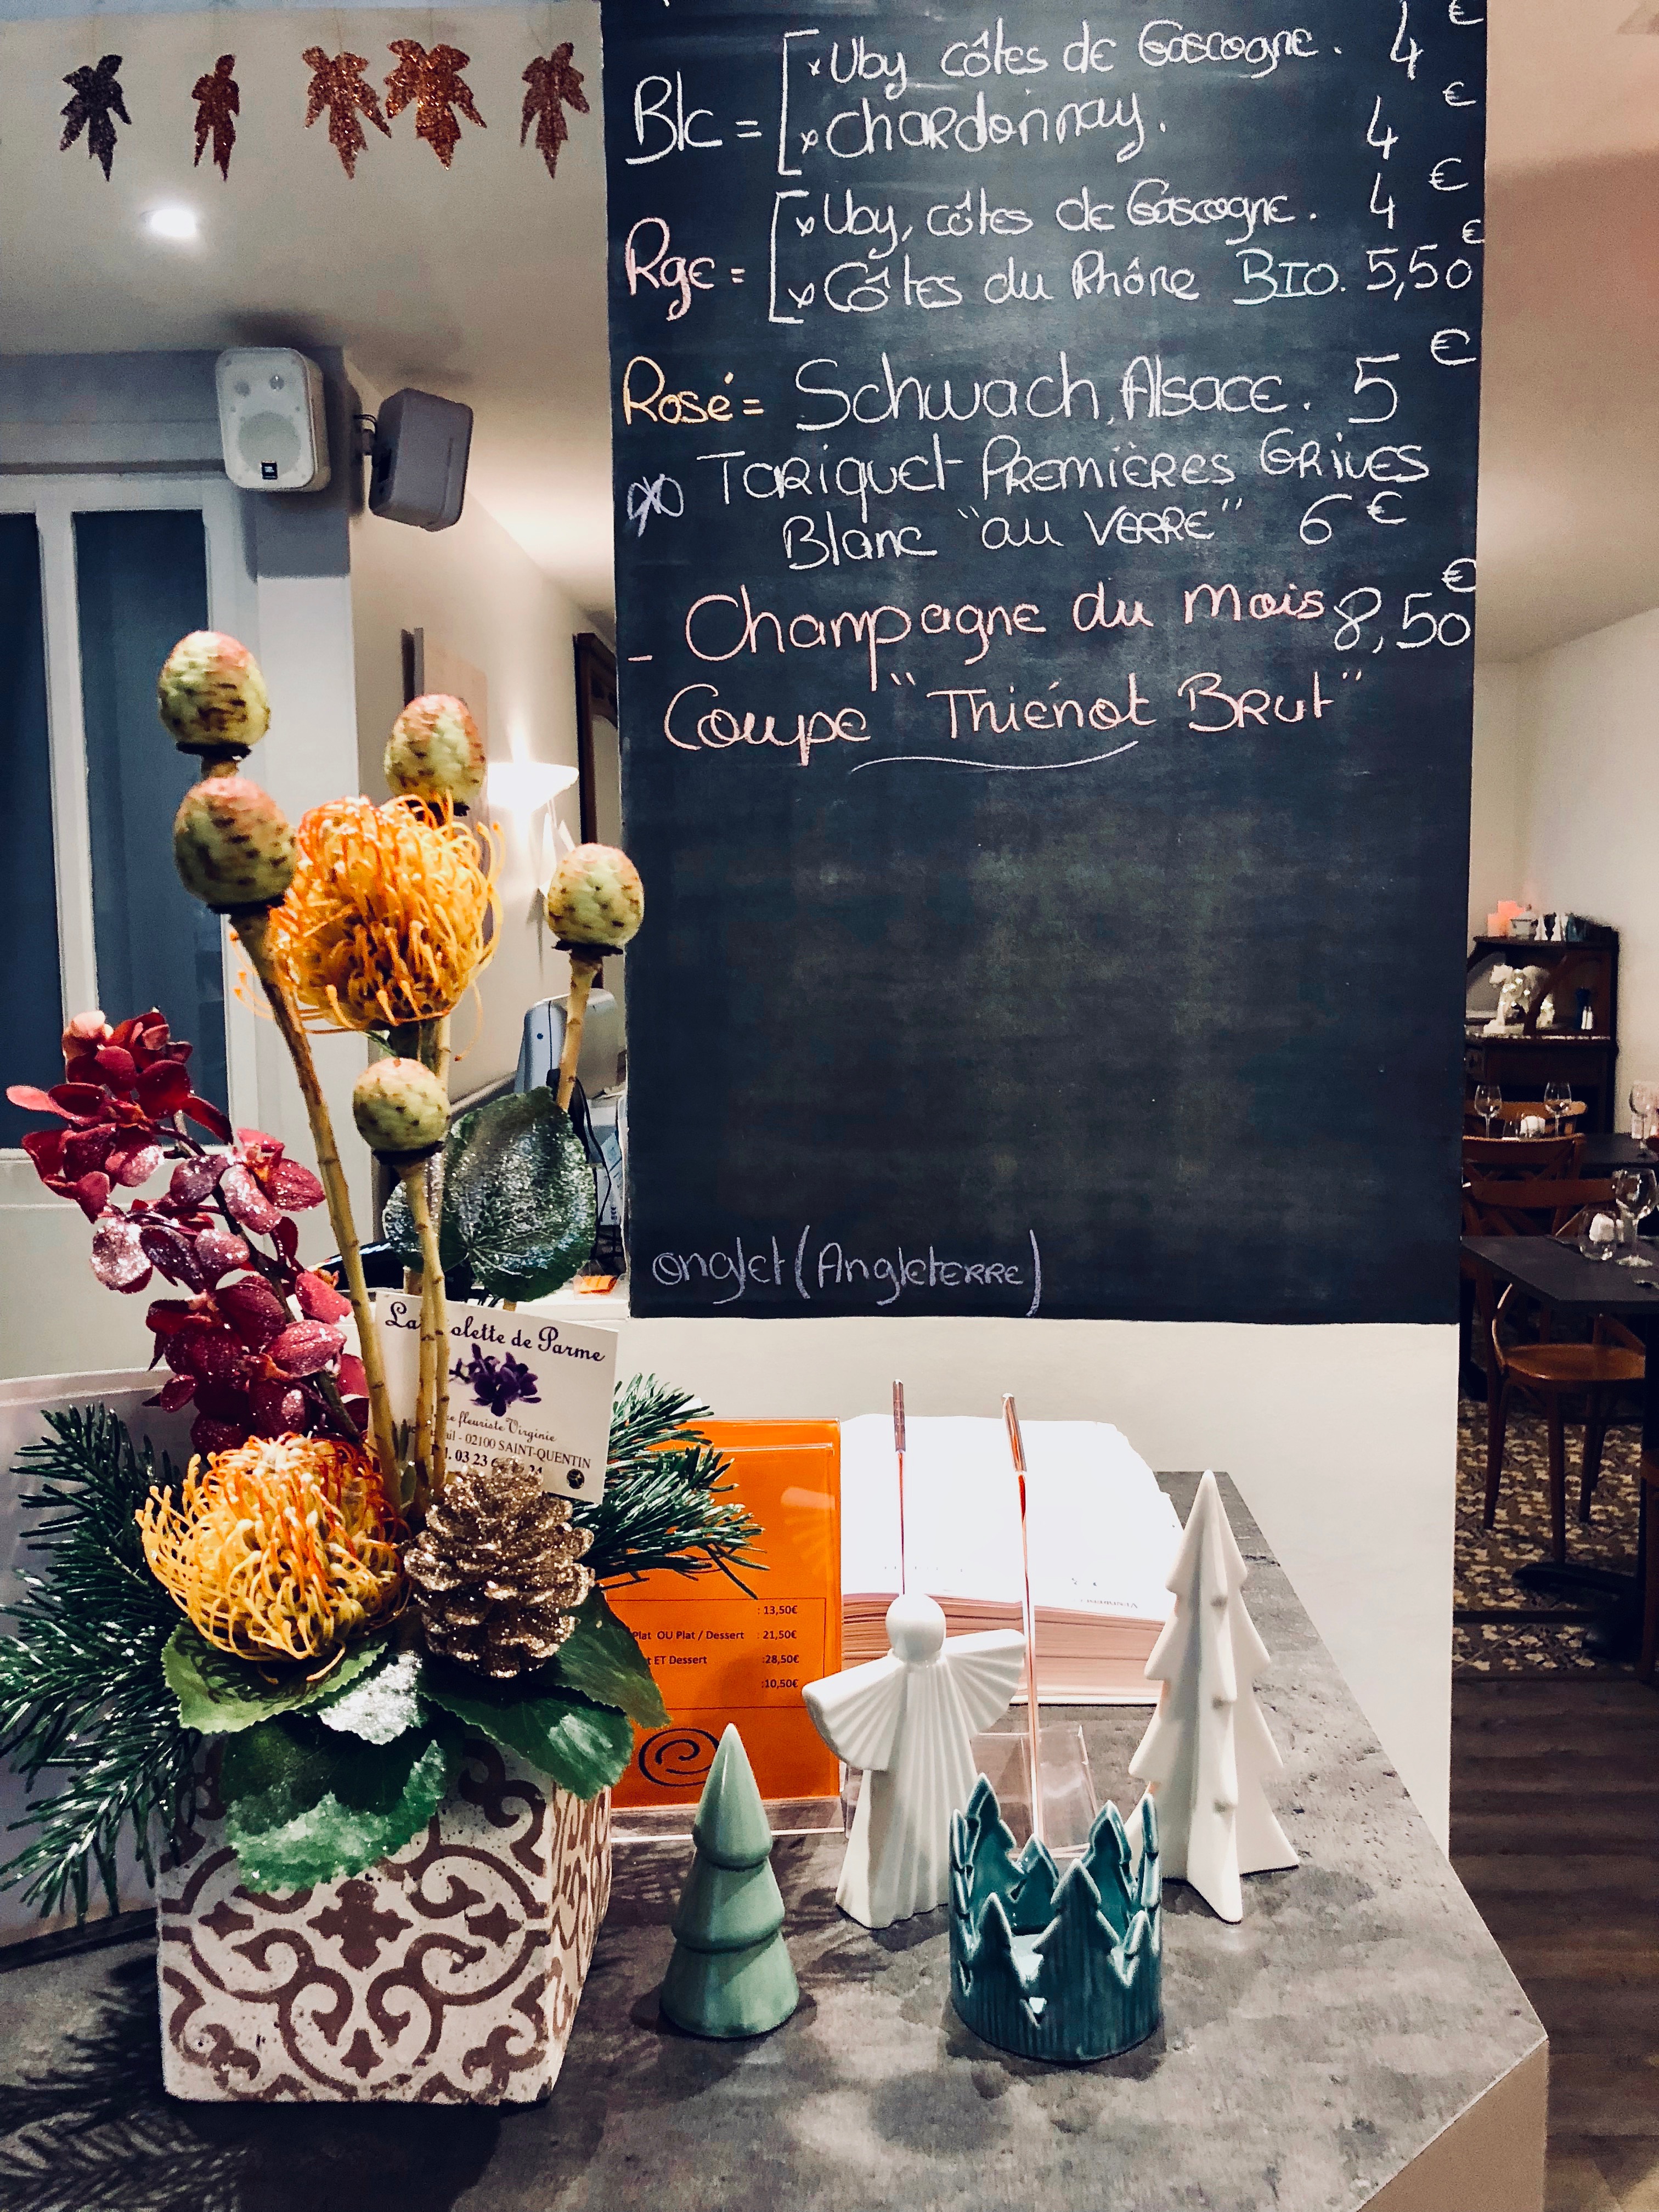 Blc = * Uby côtes de Gascogne. 4 €
* Chardonnay. 4 €
Rge = * Uby, côtes de Gascogne. 4 €
* Côtes du Rhône BIO. 5,50 €
Rosé = Schwach, Alsace. 5 €
Tariquet Premières Grives
Blanc "au verre" 6 €
- Champagne du mois 8,50 €
Coupe "Thiénot Brut"
onglet (Angleterre)
La olette de Parme
fleuriste Virginie
- 02100 SAINT-QUENTIN
03 23
: 13,50€
Plat OU Plat / Dessert : 21,50€
ET Dessert :28,50€
:10,50€